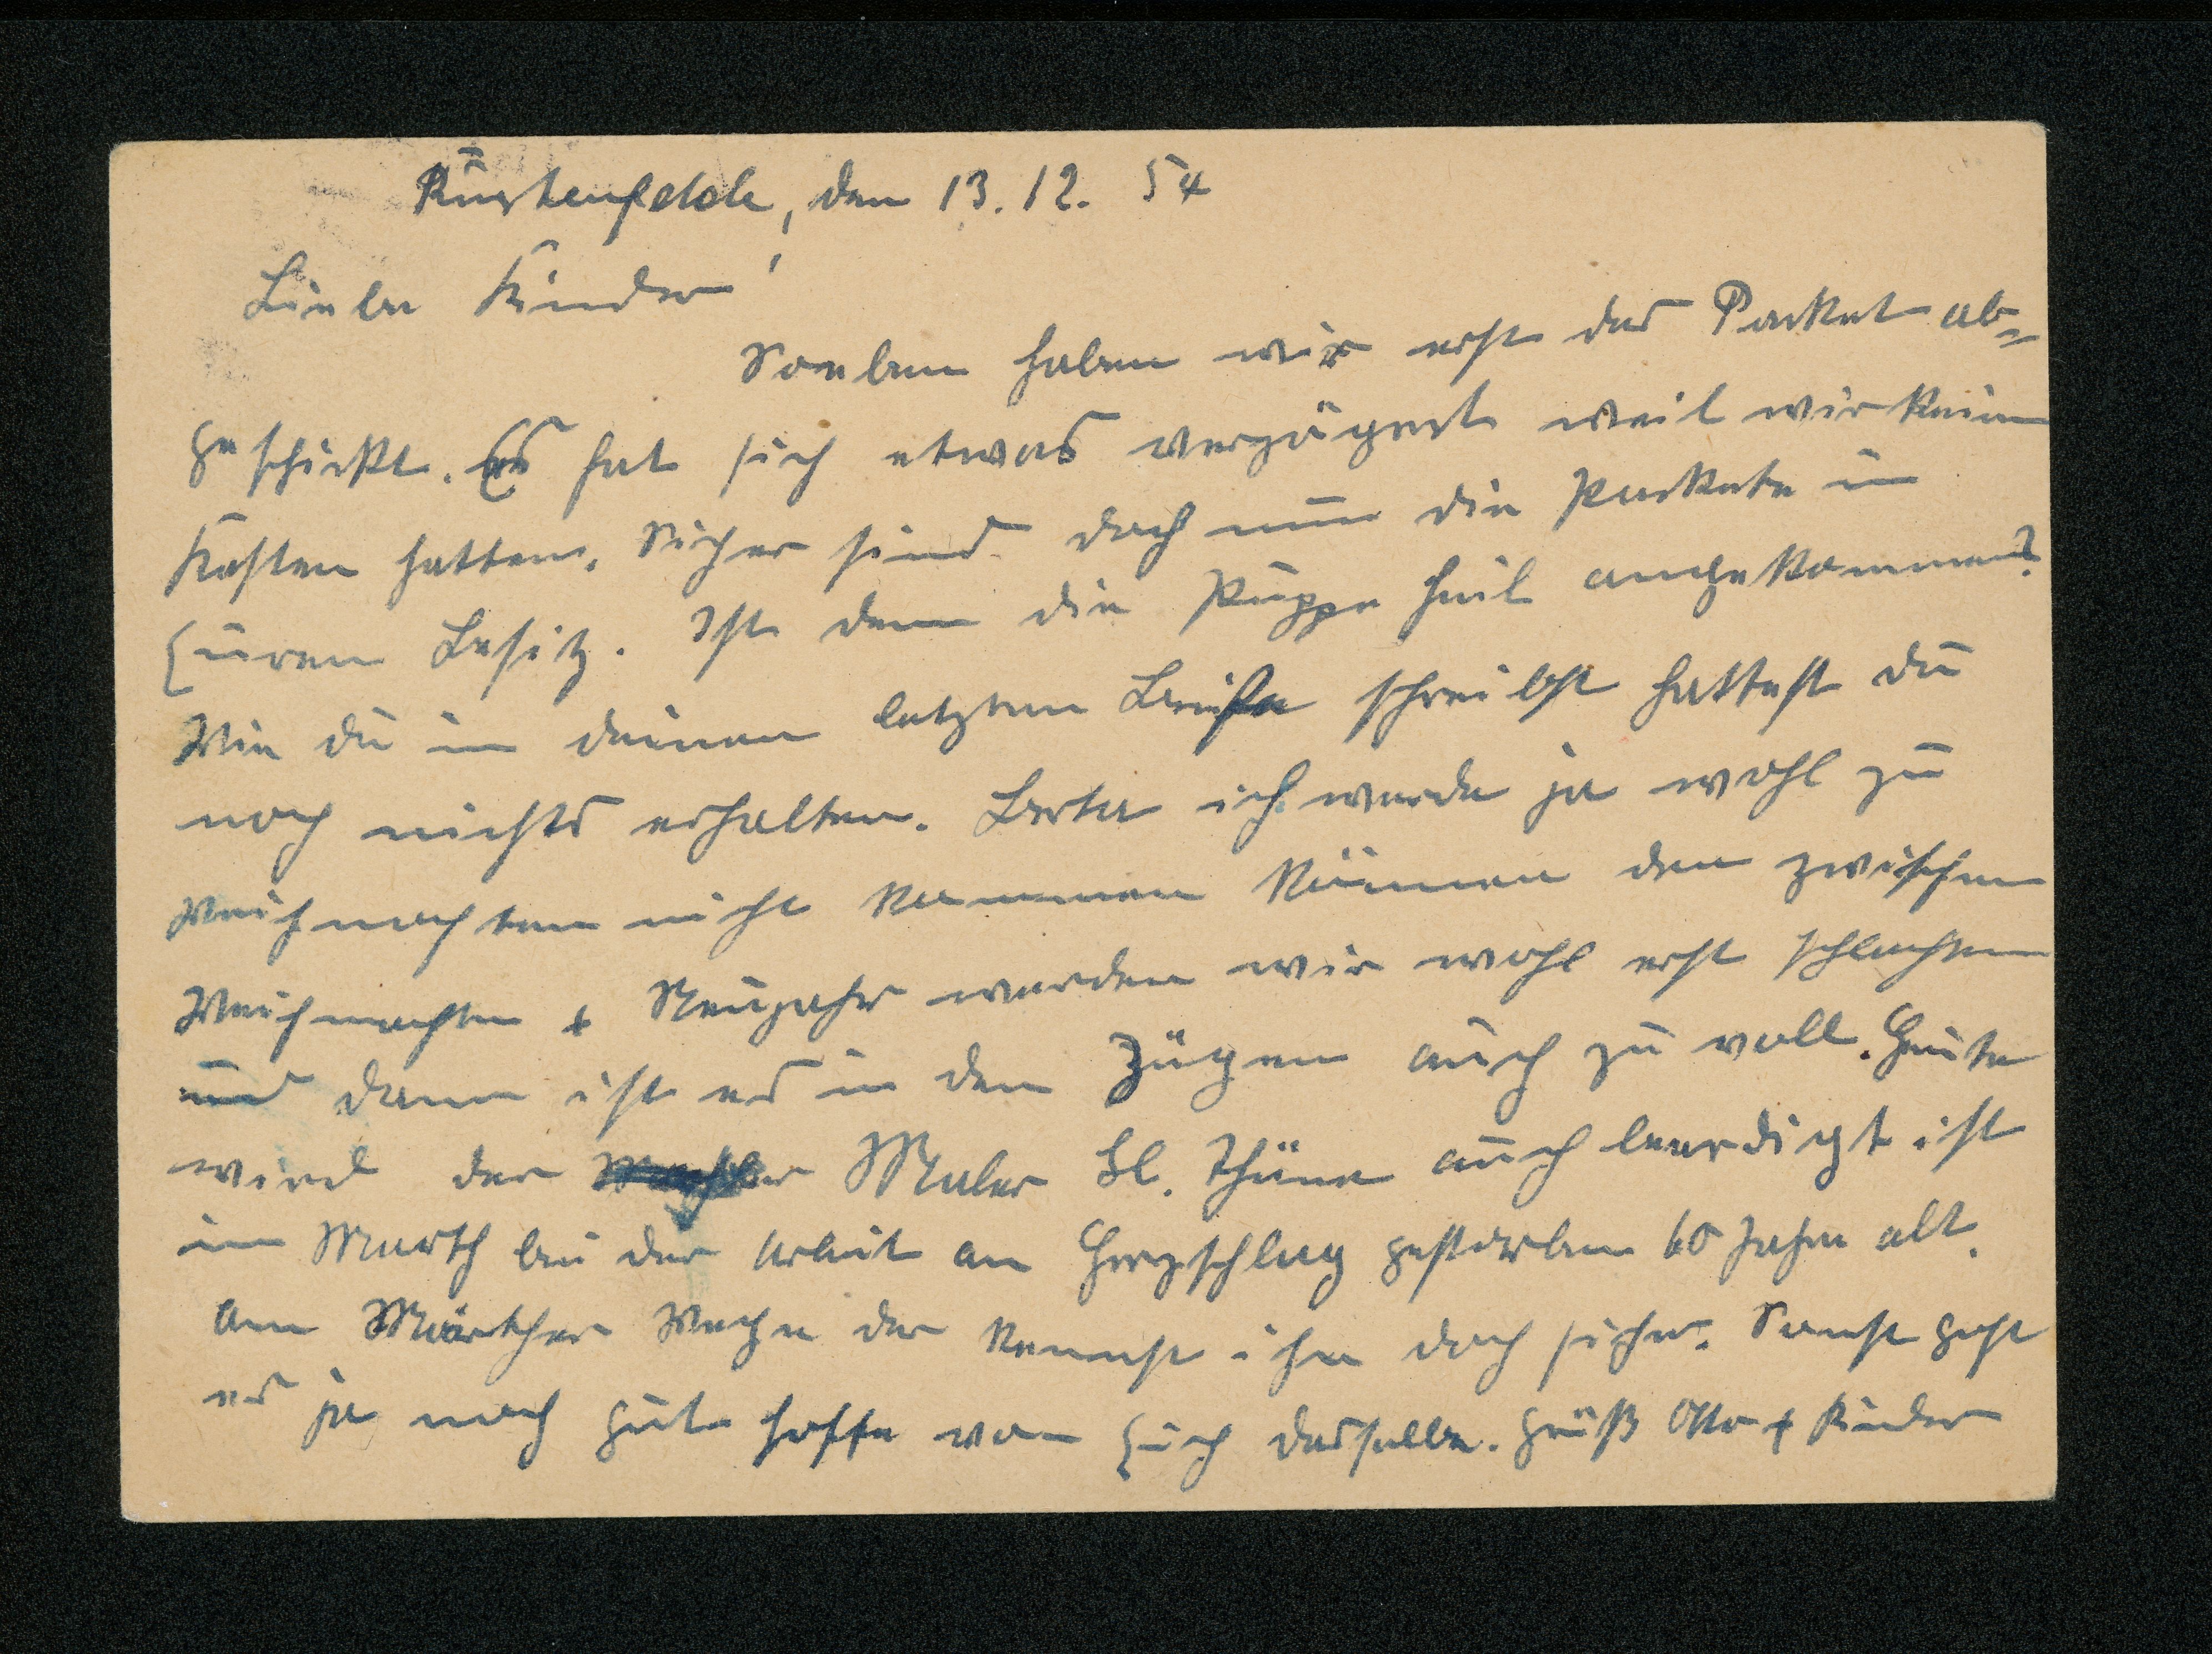 Rüstenfelde, den 13.12. 54
Liebe Kinder!
Soeben haben wir erst das Packet ab=
geschickt. Es hat sich etwas verzögert weil wir kein
Kasten hatten. Sicher sind doch nun die Packete in
Euren Besitz. Ist denn die Puppe heil angekommen?
Wie du in deinen letzten Briefe schreibst hattest du
noch nichts erhalten. Berta ich werde ja wohl zu
Weihnachten nicht kommen können den zwischen
Weihnachten + Neujahr werden wir wohl erst schlachten
und dann ist es in den Zügen auch zu voll. Heute
wird der Maler Kl. Thüne auch beerdigt ist
in Marth bei der Arbeit an Herzschlag gestorben 60 Jahre alt.
Am Märther Wege der kennst ihn doch sicher. Sonst geht
es ja noch gut hoffe von Euch dasselbe. Grüß Otto + Kinder